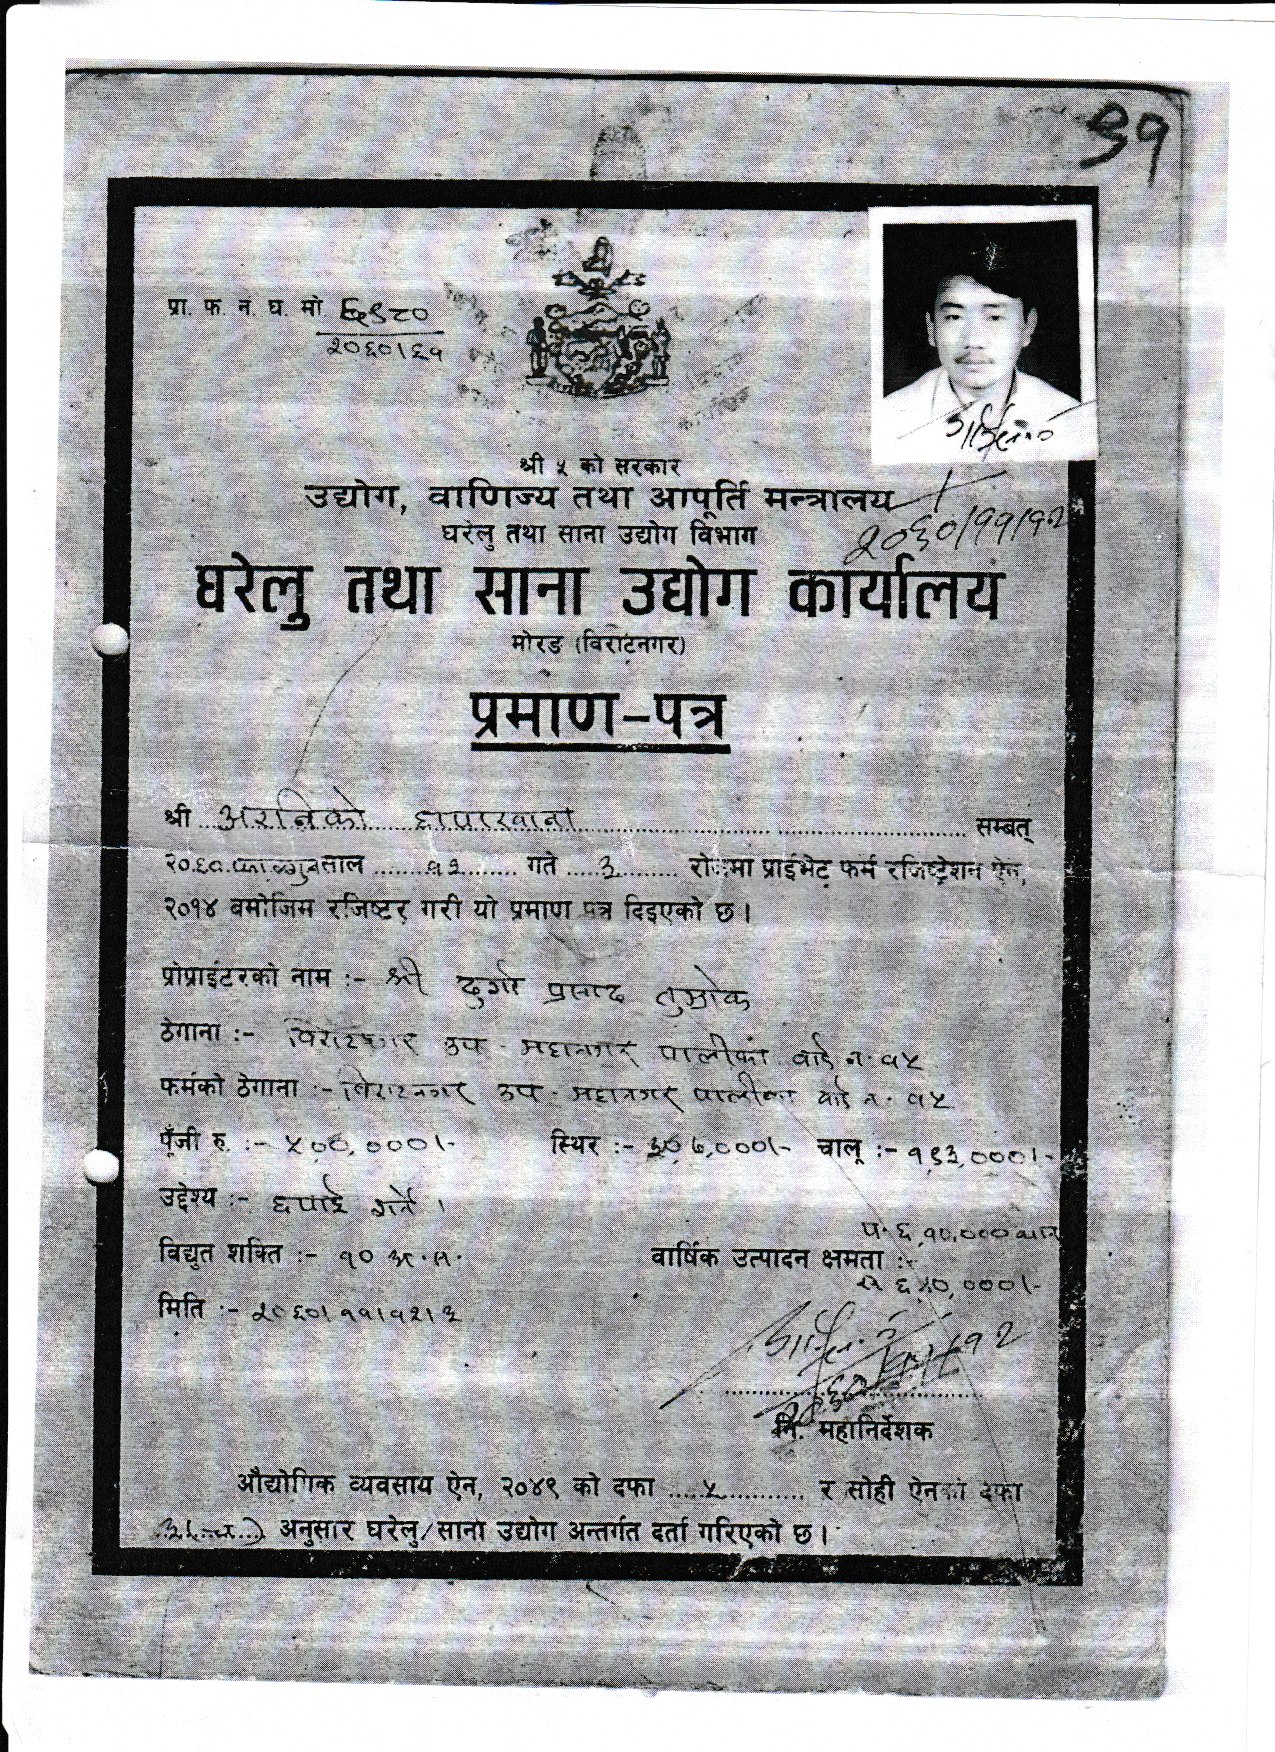 ३१
प्रा. फ. नं. घ. मो ६९८०
२०६०।६१
श्री ५ को सरकार
उद्योग, वाणिज्य तथा आपूर्ति मन्त्रालय
२०६०/११/१२
घरेलु तथा साना उद्योग विभाग
घरेलु तथा साना उद्योग कार्यालय
मोरङ (विराटनगर)
प्रमाण-पत्र
श्री अरनिको छापाखाना सम्बत्
२०६० फाल्गुन साल १२ गते ३ रोजमा प्राईभेट फर्म रजिष्ट्रेशन ऐन,
२०१४ बमोजिम रजिष्टर गरी यो प्रमाण पत्र दिइएको छ ।
प्रोप्राईटरको नाम :- श्री दुर्गा प्रसाद तुम्रोक
ठेगाना :- विराटनगर उप-महानगर पालीका वार्ड न. १५
फर्मको ठेगाना :- विराटनगर उप-महानगर पालीका वार्ड न. १५
पूँजी रु. :- ५००,०००।- स्थिर :- ३०७,०००।- चालू :- १९३,०००।-
उद्देश्य :- छपाई गर्ने ।
प. ६,१०,०००
विद्युत शक्ति :- १० अ.स. वार्षिक उत्पादन क्षमता :-
६५०,०००।-
मिति :- २०६०।११।१२।३
नि. महानिर्देशक
औद्योगिक व्यवसाय ऐन, २०४९ को दफा ५ र सोही ऐनको दफा
अनुसार घरेलु/साना उद्योग अन्तर्गत दर्ता गरिएको छ ।